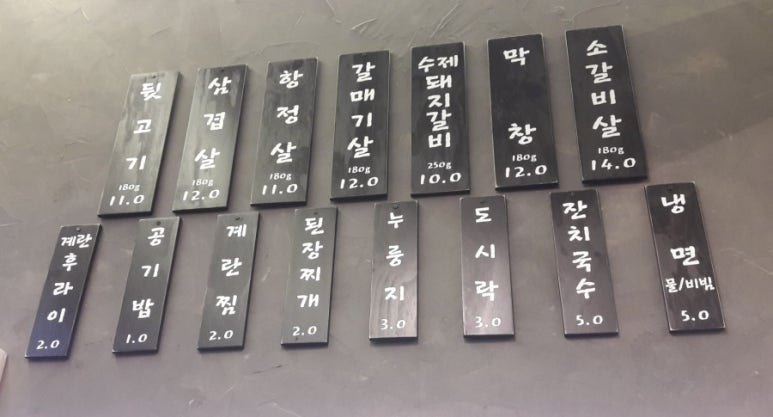 뒷고기
180g
11.0
삼겹살
180g
12.0
항정살
180g
11.0
갈매기살
180g
12.0
수제
돼지갈비
250g
10.0
막창
180g
12.0
소갈비살
180g
14.0
계란
후라이
2.0
공기밥
1.0
계란찜
2.0
된장찌개
2.0
누룽지
3.0
도시락
3.0
잔치국수
5.0
냉면
물/비빔
5.0